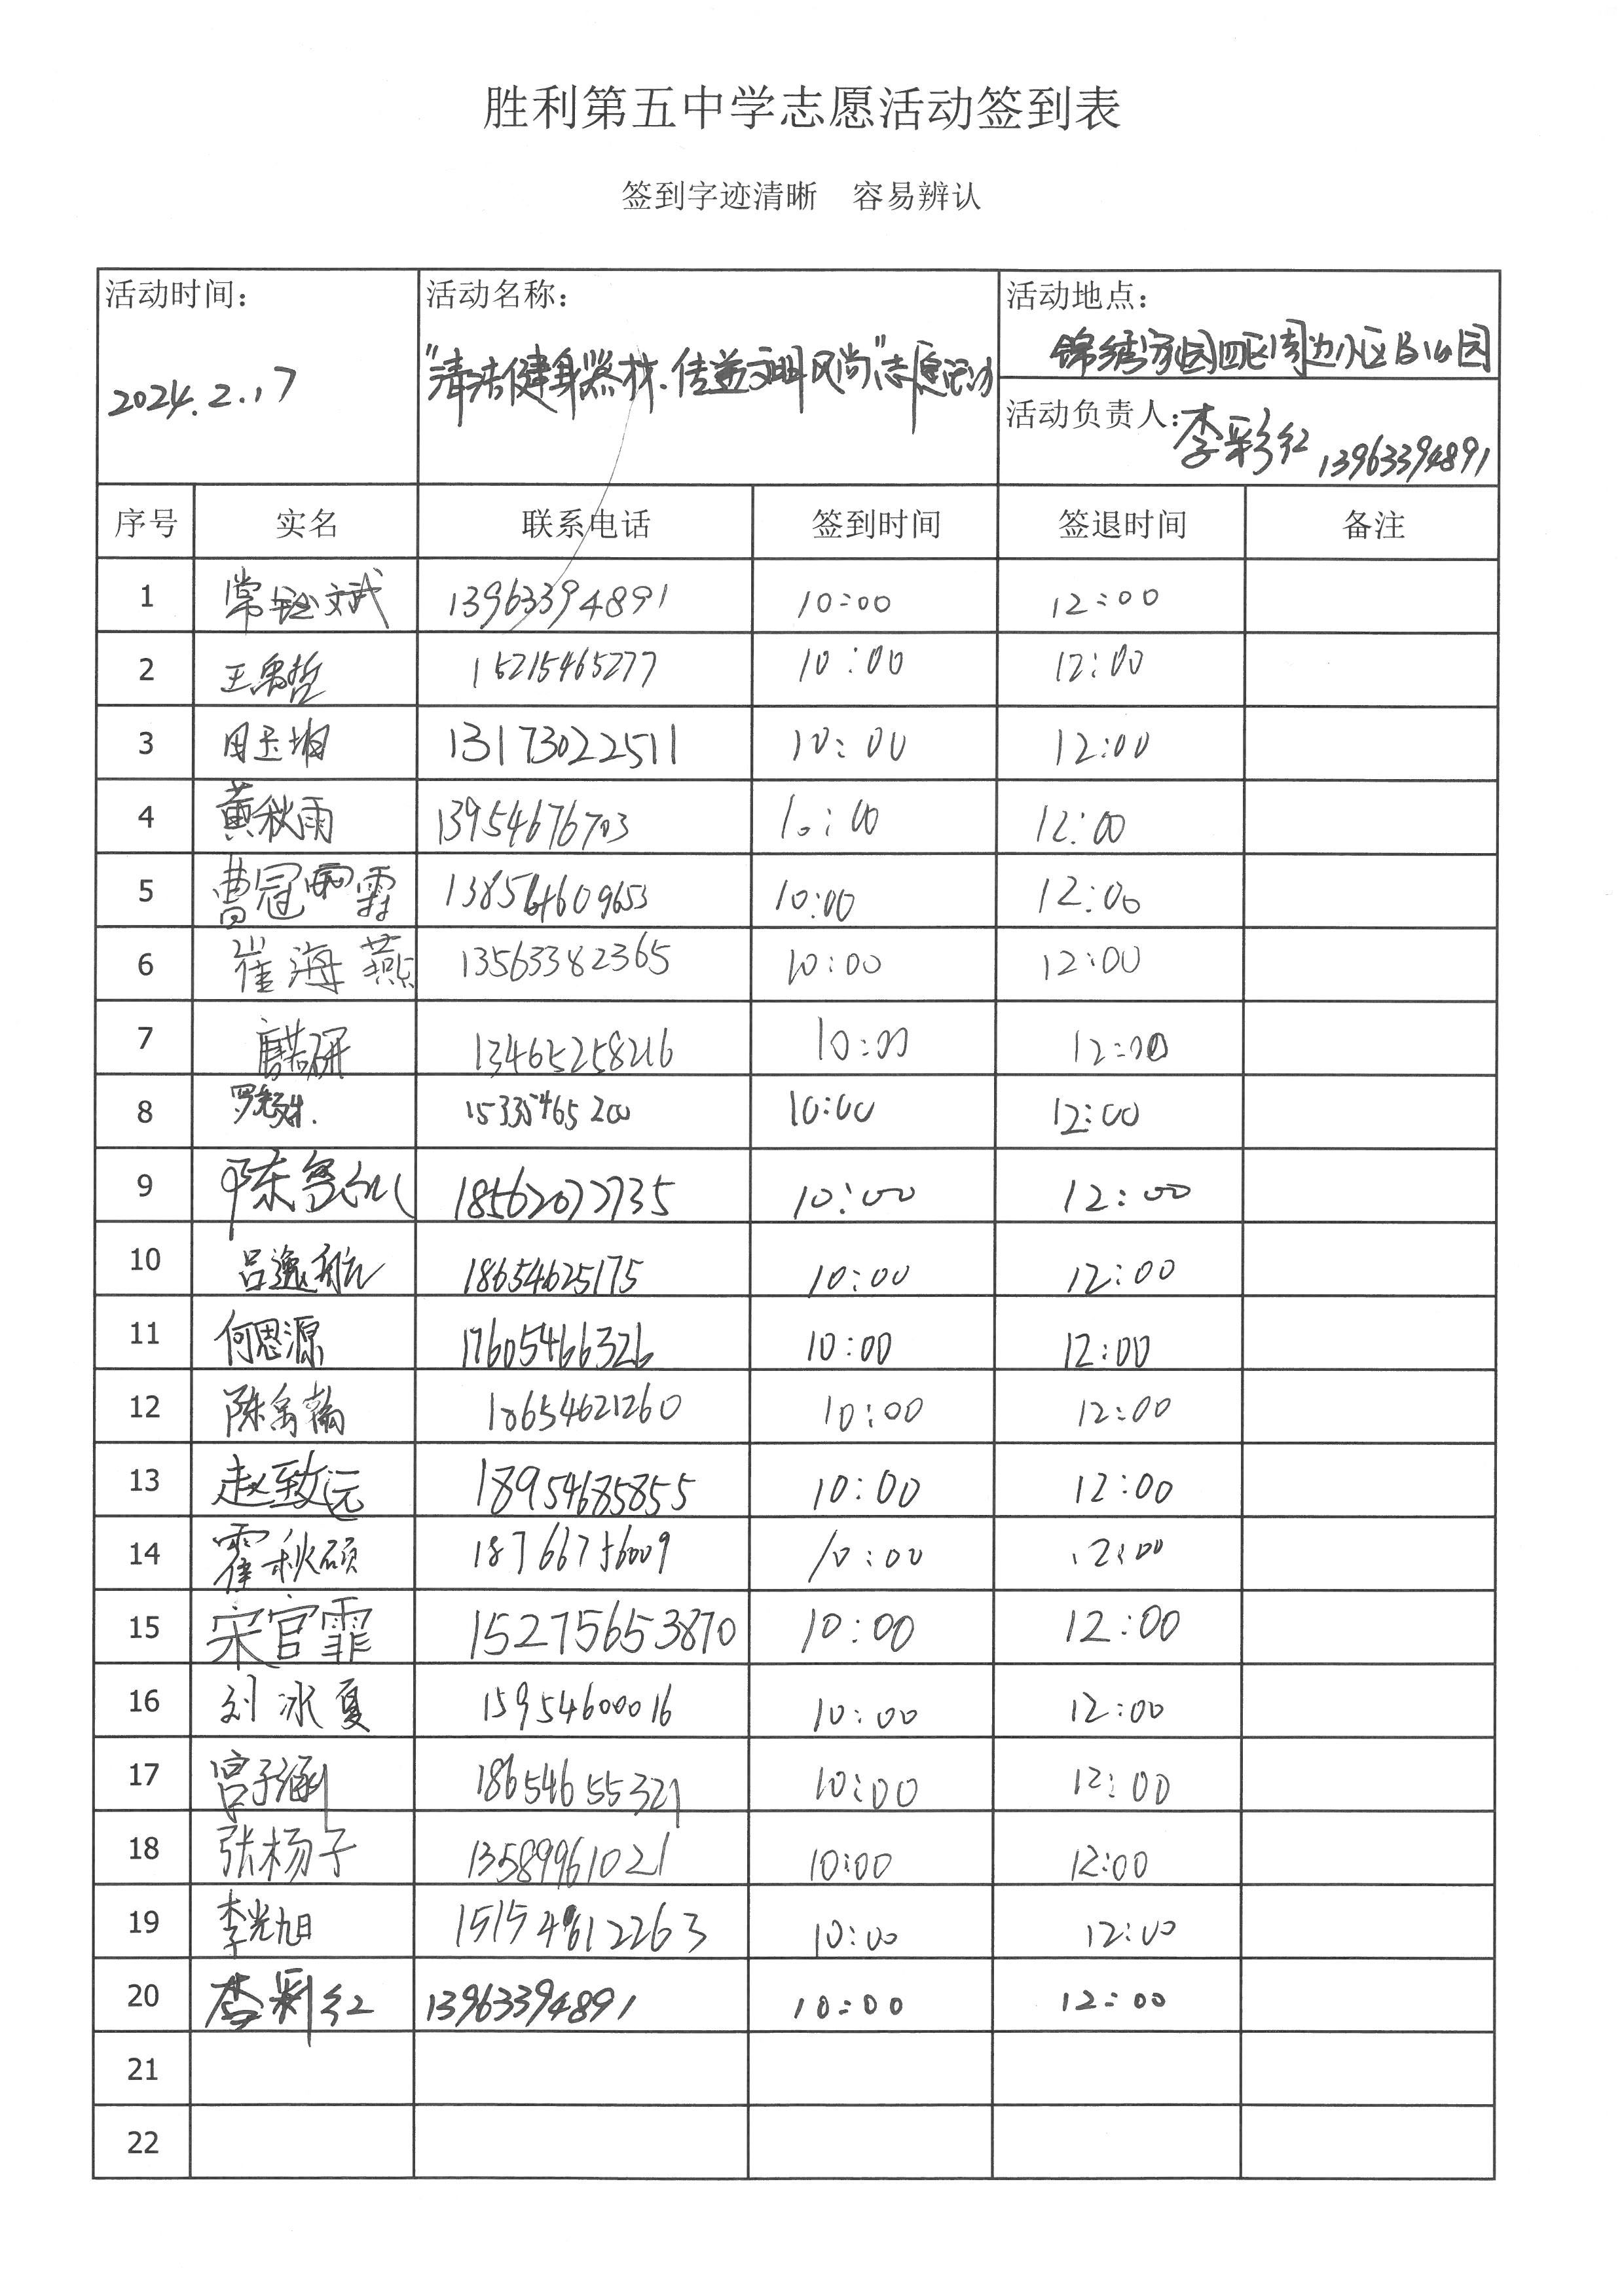 胜利第五中学志愿活动签到表
签到字迹清晰 容易辨认
活动时间： 活动名称： 活动地点：
2024.2.17 "清洁健身器材.传递文明风尚"志愿活动 锦绣家园四区周边小区及公园
活动负责人：李彩红 13963394891
序号 实名 联系电话 签到时间 签退时间 备注
1 常钰文武 13963394891 10:00 12:00
2 王禹哲 15215465277 10:00 12:00
3 13173022511 10:00 12:00
4 黄秋雨 13954676703 10:00 12:00
5 曹冠霖 10:00 12:00
6 崔海燕 13563382365 10:00 12:00
7 唐若研 13465258216 10:00 12:00
8 15335465200 10:00 12:00
9 18562077735 10:00 12:00
10 吕逸航 18654625175 10:00 12:00
11 何思源 17605466326 10:00 12:00
12 陈禹翰 18654621260 10:00 12:00
13 赵致远 18954685855 10:00 12:00
14 霍秋硕 18766756009 10:00 12:00
15 宋官霏 15275653870 10:00 12:00
16 刘冰夏 15954600016 10:00 12:00
17 宫子涵 18654655321 10:00 12:00
18 张杨子 13589961021 10:00 12:00
19 李光旭 15154612263 10:00 12:00
20 李彩红 13963394891 10:00 12:00
21
22